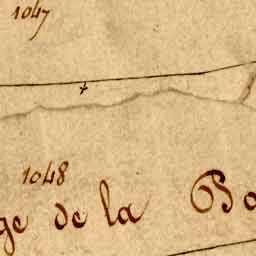 1047
1048
ge de la Bo